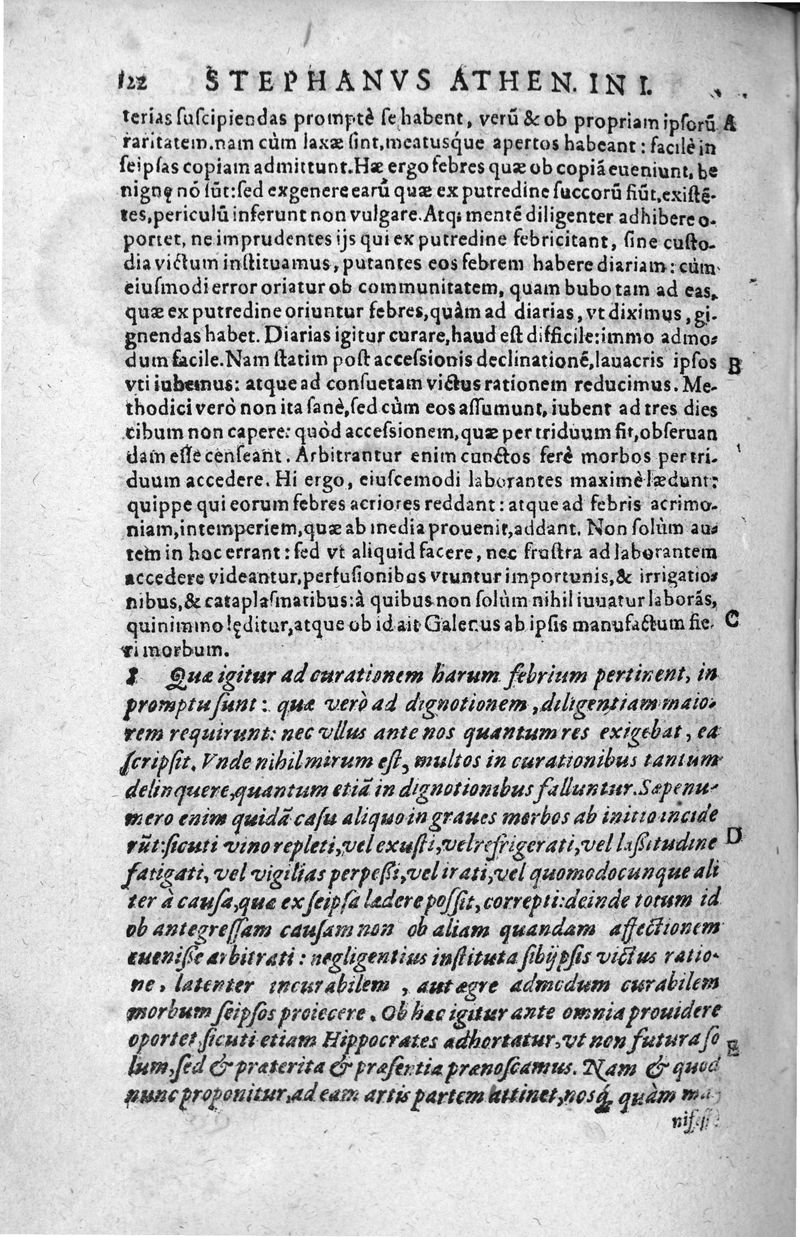 122 STEPHANVS ATHEN. IN I.
terias ſuſcipiendas promptè ſe habent, verũ & ob propriam ipſorũ A
raritatem. nam cùm laxæ ſint, meatusq́ue apertos habeant: facilè in
ſeipſas copiam admittunt. Hæ ergo febres quæ ob copiã eueniunt, be
nignę nõ ſũt: ſed ex genere earũ quæ ex putredine ſuccorũ fiũt, exiſtẽ-
tes, periculũ inferunt non vulgare. Atq; mentẽ diligenter adhibere o-
portet, ne imprudentes ijs qui ex putredine febricitant, ſine cuſto-
dia victum inſtituamus, putantes eos febrem habere diariam: cùm
eiuſmodi error oriatur ob communitatem, quam bubo tam ad eas,
quæ ex putredine oriuntur febres, quàm ad diarias, vt diximus, gi-
gnendas habet. Diarias igitur curare, haud eſt difficile: immo admo-
dum facile. Nam ſtatim poſt acceſsionis declinationẽ, lauacris ipſos B
vti iubemus: atque ad conſuetam victus rationem reducimus. Me-
thodici verò non ita ſanè, ſed cùm eos aſſumunt, iubent ad tres dies
cibum non capere: quòd acceſsionem, quæ per triduum fit, obſeruan
dam eſſe cenſeant. Arbitrantur enim cunctos ferè morbos per tri-
duum accedere. Hi ergo, eiuſcemodi laborantes maximè lædunt:
quippe qui eorum febres acriores reddant: atque ad febris acrimo-
niam, intemperiem, quæ ab media prouenit, addant. Non ſolùm au-
tem in hoc errant: ſed vt aliquid facere, nec fruſtra ad laborantem
accedere videantur, perfuſionibus vtuntur importunis, & irrigatio-
nibus, & cataplaſmatibus: à quibus non ſolùm nihil iuuatur laborãs,
quinimmo lęditur, atque ob id ait Galenus ab ipſis manufactum fie- C
ri morbum.
1 Quæ igitur ad curationem harum febrium pertinent, in
promptu ſunt: quæ verò ad dignotionem, diligentiam maio-
rem requirunt: nec vllus ante nos quantum res exigebat, ea
ſcripſit. Vnde nihil mirum eſt, multos in curationibus tantum
delinquere, quantum etiã in dignotionibus falluntur. Sæpenu-
mero enim quidã caſu aliquo in graues morbos ab initio incide
rũt: ſicuti vino repleti, vel exuſti, vel refrigerati, vel laſsitudine D
fatigati, vel vigilias perpeſsi, vel irati, vel quomodocunque ali
ter à cauſa, quæ ex ſeipſa lædere poſsit, correpti: deinde totum id
ob antegreſſam cauſam non ob aliam quandam affectionem
eueniſſe arbitrati: negligentius inſtituta ſibijpſis victus ratio-
ne, latenter incurabilem, aut ægre admodum curabilem
morbum ſeipſos proiecere. Ob hæc igitur ante omnia prouidere
oportet, ſicuti etiam Hippocrates adhortatur, vt non futura ſo
lum, ſed & præterita & præſentia prænoſcamus. Nam & quod E
nunc proponitur, ad eam artis partem attinet, nosq́; quàm ma